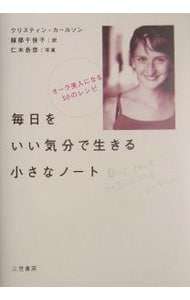 クリスティン・カールソン
服部千佳子/訳
仁木岳彦/写真
オーラ美人になる
50のレシピ
毎日を
いい気分で生きる
小さなノート
三笠書房